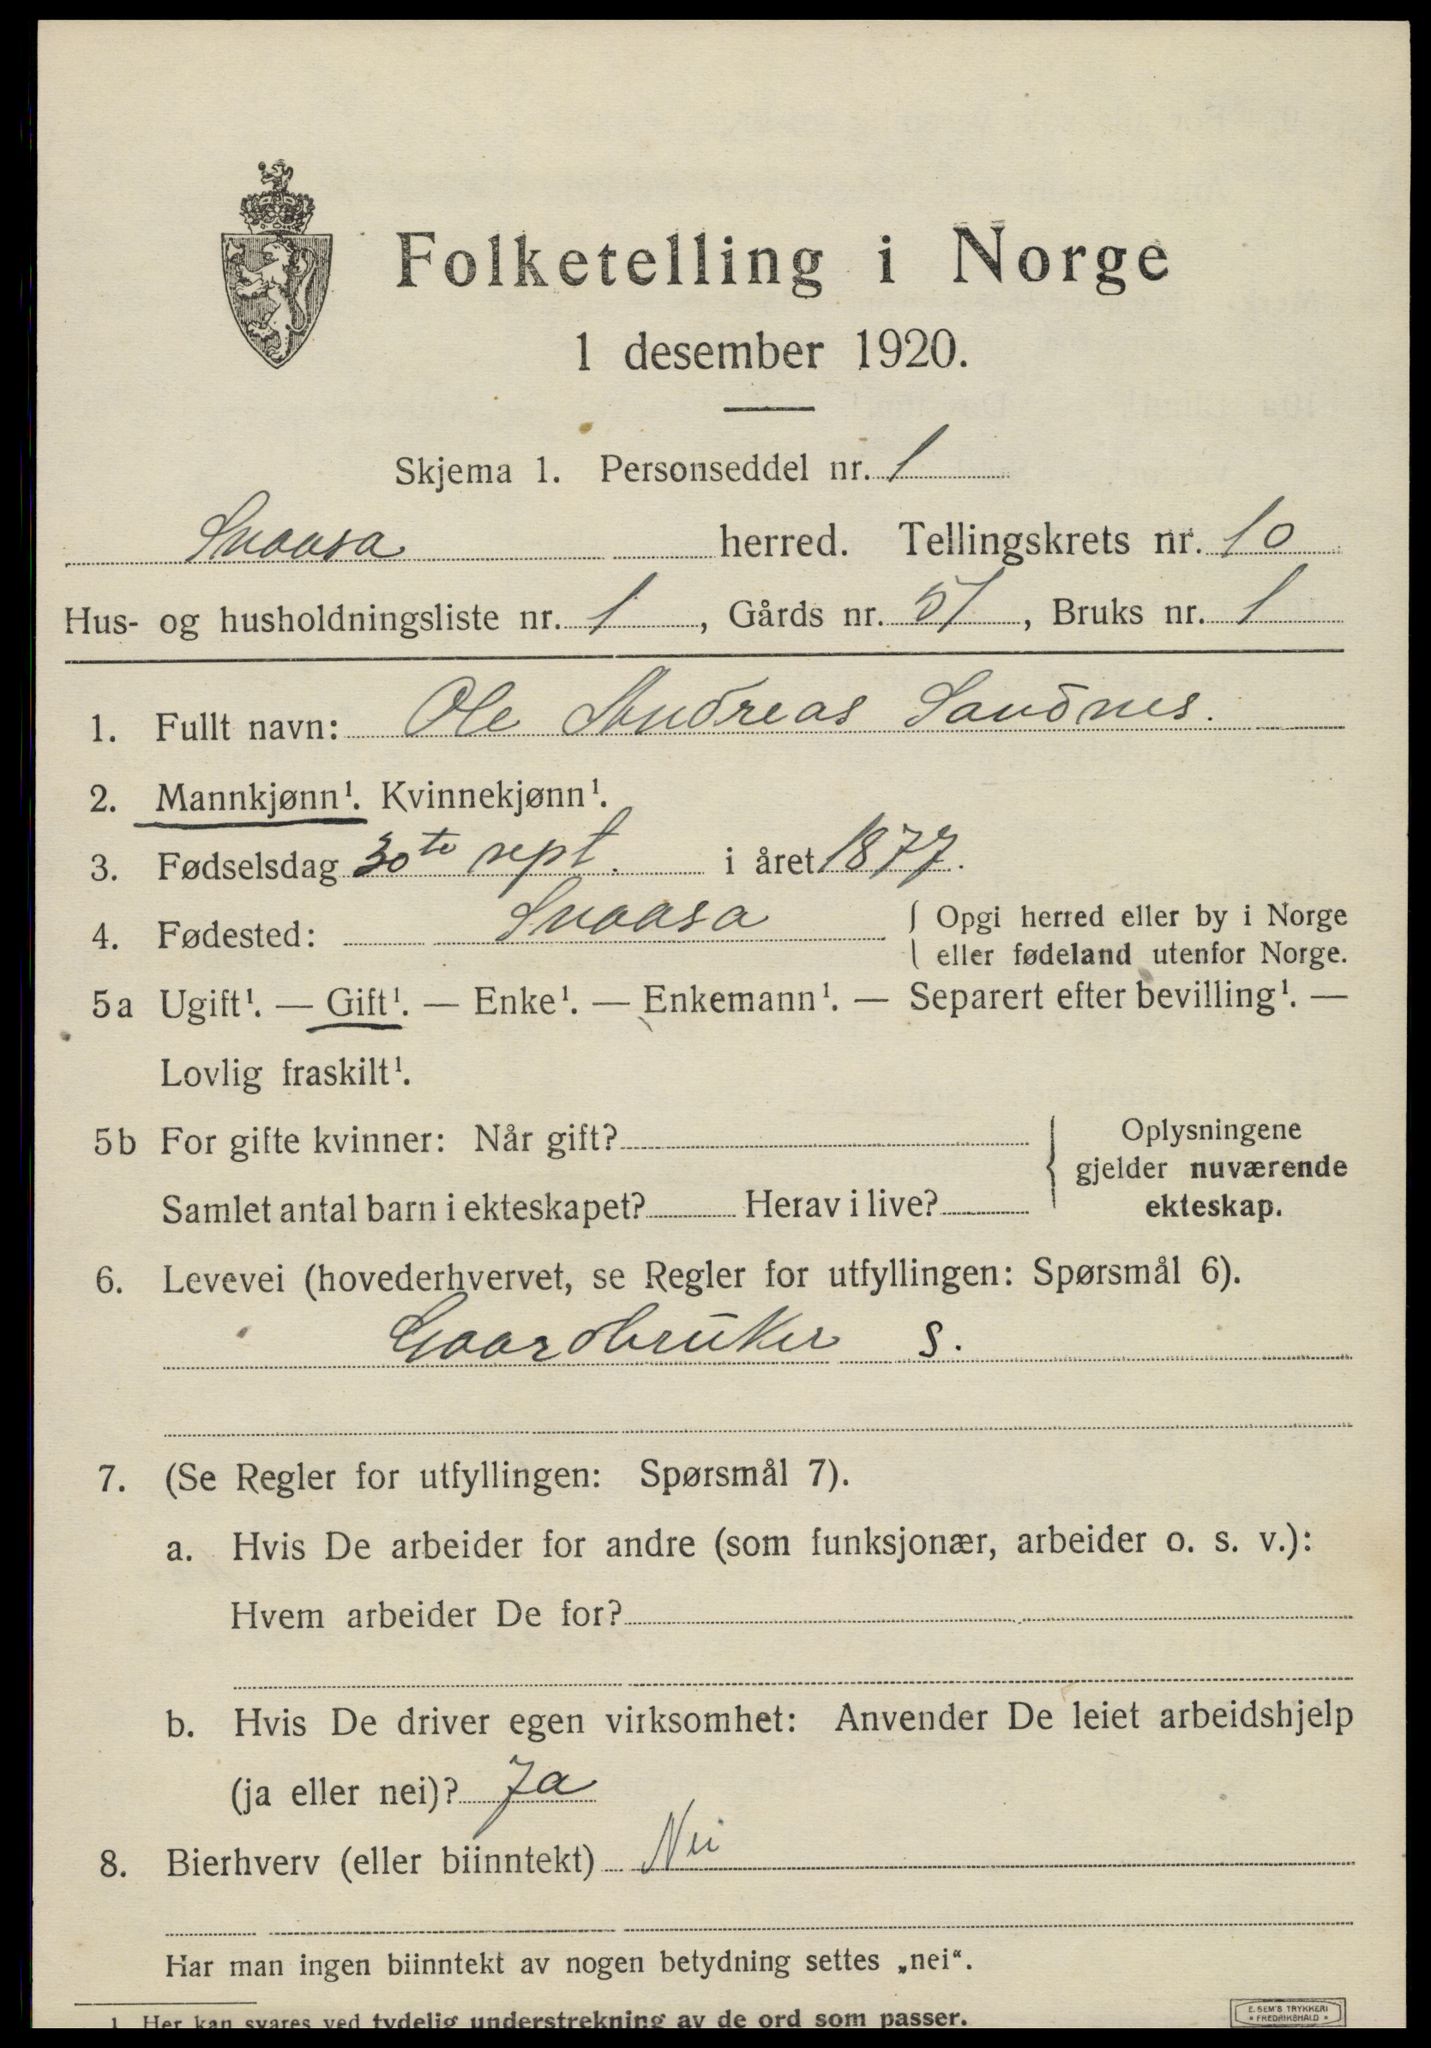 Folketelling i Norge
1 desember 1920.
Skjema 1. Personseddel nr. 1
Snaasa herred. Tellingskrets nr. 10
Hus- og husholdningsliste nr. 1, Gårds nr. 51, Bruks nr. 1
1. Fullt navn: Ole Andreas Sandnes.
2. Mannkjønn¹. Kvinnekjønn¹.
3. Fødselsdag 30te sept. i året 1877.
4. Fødested: Snaasa { Opgi herred eller by i Norge
eller fødeland utenfor Norge.
5a Ugift¹. — Gift¹. — Enke¹. — Enkemann¹. — Separert efter bevilling¹. —
Lovlig fraskilt¹.
5b For gifte kvinner: Når gift? { Oplysningene
gjelder nuværende
Samlet antal barn i ekteskapet? Herav i live? ekteskap.
6. Levevei (hovederhvervet, se Regler for utfyllingen: Spørsmål 6).
Gaardbruker S.
7. (Se Regler for utfyllingen: Spørsmål 7).
a. Hvis De arbeider for andre (som funksjonær, arbeider o. s. v.):
Hvem arbeider De for?
b. Hvis De driver egen virksomhet: Anvender De leiet arbeidshjelp
(ja eller nei)? Ja
8. Bierhverv (eller biinntekt) Nei
Har man ingen biinntekt av nogen betydning settes „nei“.
1. Her kan svares ved tydelig understrekning av de ord som passer.
E. SEM'S TRYKKERI
* FREDRIKSHALD *